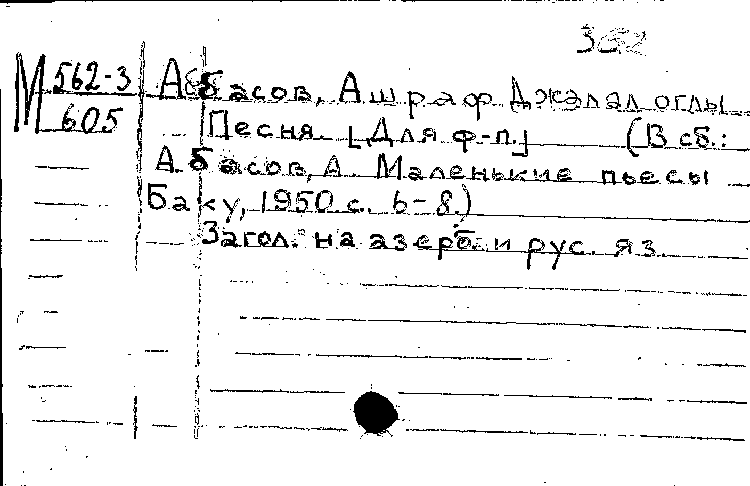 М 562-3
605
Аббасов, Ашраф Джалал оглы
Песня. [Для ф-п.] (В сб.:
Аббасов, А. Маленькие пьесы
Баку, 1950. с. 6-8.)
Загол. на азерб. и рус. яз.